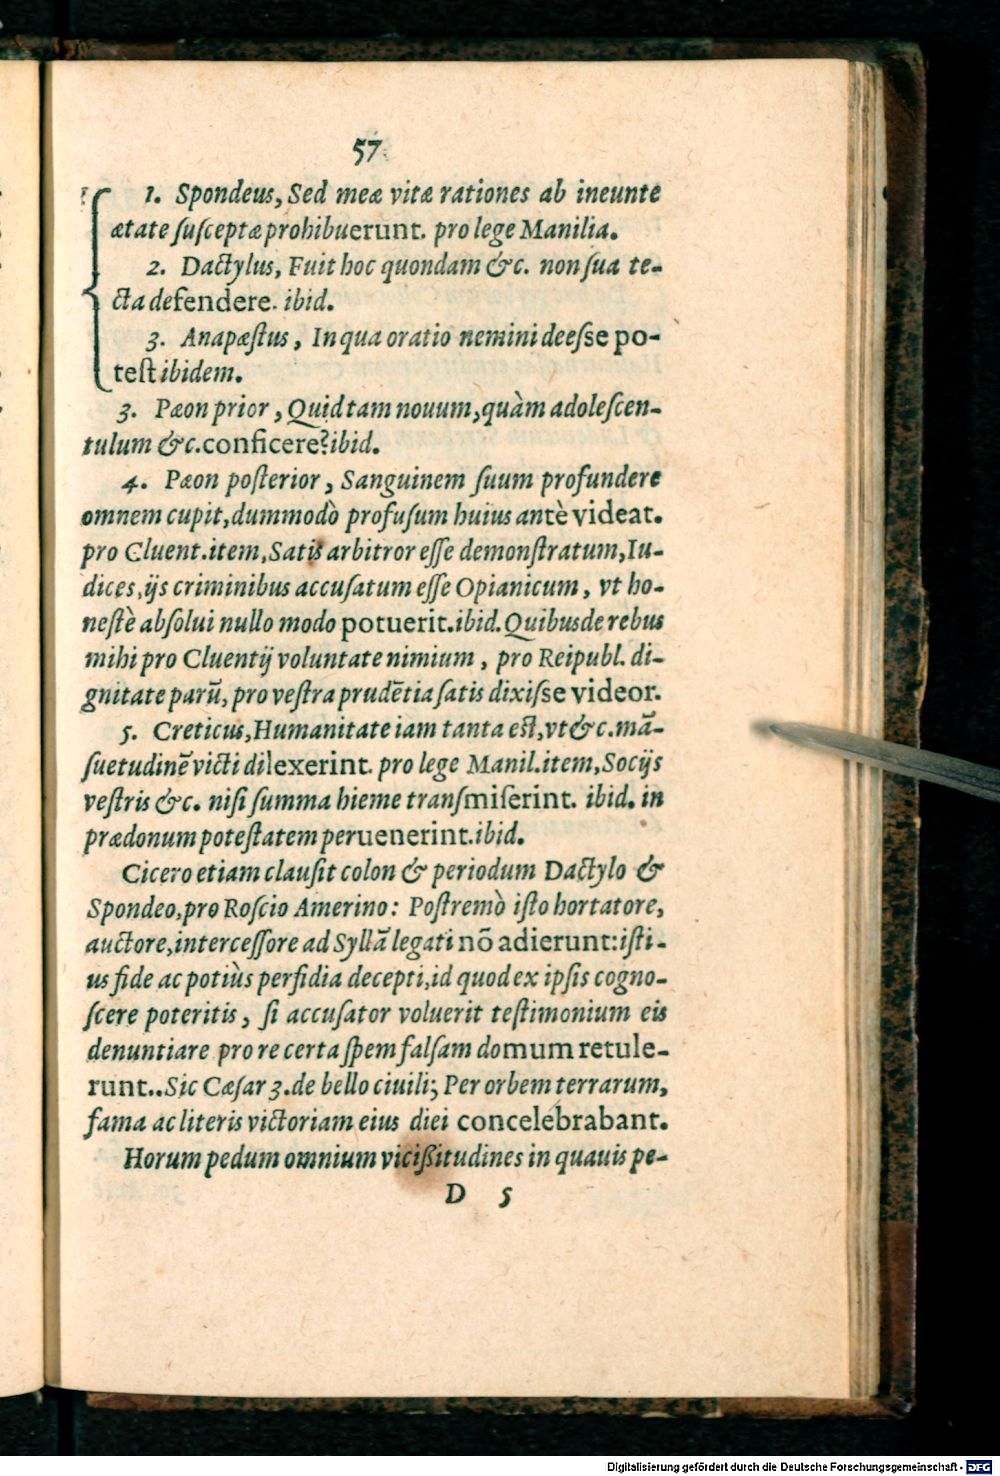 57
1. Spondeus, Sed meæ vitæ rationes ab ineunte
ætate ſuſceptæ prohibuerunt. pro lege Manilia.
2. Dactylus, Fuit hoc quondam &c. non ſua te-
cta defendere. ibid.
3. Anapæſtus, In qua oratio nemini deeſse po-
teſt ibidem.
3. Pæon prior, Quid tam nouum, quàm adoleſcen-
tulum &c. conficere? ibid.
4. Pæon poſterior, Sanguinem ſuum profundere
omnem cupit, dummodò profuſum huius antè videat.
pro Cluent. item, Satis arbitror eſſe demonſtratum, Iu-
dices, ijs criminibus accuſatum eſſe Opianicum, vt ho-
neſtè abſolui nullo modo potuerit. ibid. Quibus de rebus
mihi pro Cluentij voluntate nimium, pro Reipubl. di-
gnitate parũ, pro veſtra prudẽtia ſatis dixiſse videor.
5. Creticus, Humanitate iam tanta eſt, vt &c. mã-
ſuetudinẽ victi dilexerint. pro lege Manil. item, Socijs
veſtris &c. niſi ſumma hieme tranſmiſerint. ibid. in
prædonum poteſtatem peruenerint. ibid.
Cicero etiam clauſit colon & periodum Dactylo &
Spondeo, pro Roſcio Amerino: Poſtremò iſto hortatore,
auctore, interceſſore ad Syllã legati nõ adierunt: iſti-
us fide ac potiùs perfidia decepti, id quod ex ipſis cogno-
ſcere poteritis, ſi accuſator voluerit teſtimonium eis
denuntiare pro re certa ſpem falſam domum retule-
runt.. Sic Cæſar 3. de bello ciuili; Per orbem terrarum,
fama ac literis victoriam eius diei concelebrabant.
Horum pedum omnium viciſſitudines in quauis pe-
D 5
Digitalisierung gefördert durch die Deutsche Forschungsgemeinschaft - DFG